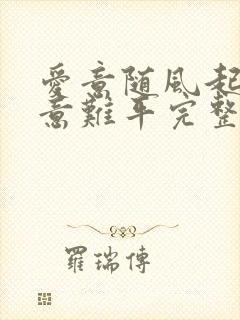 愛意随風起
意難平完整
羅瑞傳